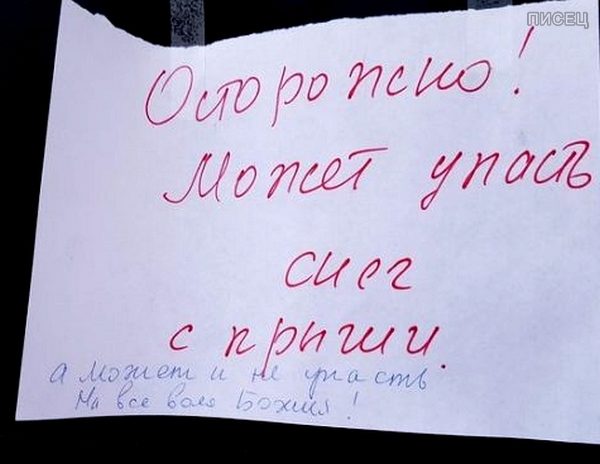 ПИСЕЦ
Осторожно!
Может упасть
снег
с крыши.
а может и не упасть
На все воля Божия!